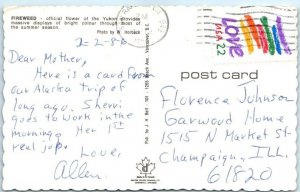 FIREWEED - official flower of the Yukon provides
massive displays of bright colour through most of
the summer season.
Photo by W. Herback
2-2-86
Dear Mother,
Here is a card from
our Alaska trip of
long ago. Sherri
goes to work in the
morning. Her 1st
real job.
Love,
Allen.
LOVE
USA 22
post card
Florence Johnson
Garwood Home
1515 N Market St
Champaign, ILL.
61820